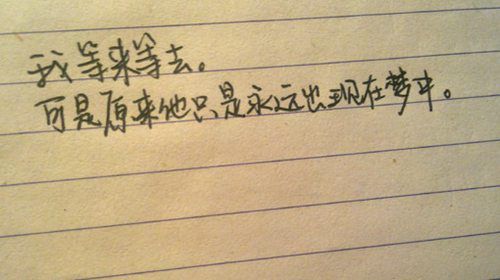 我等来等去。
可是原来他只是永远出现在梦中。